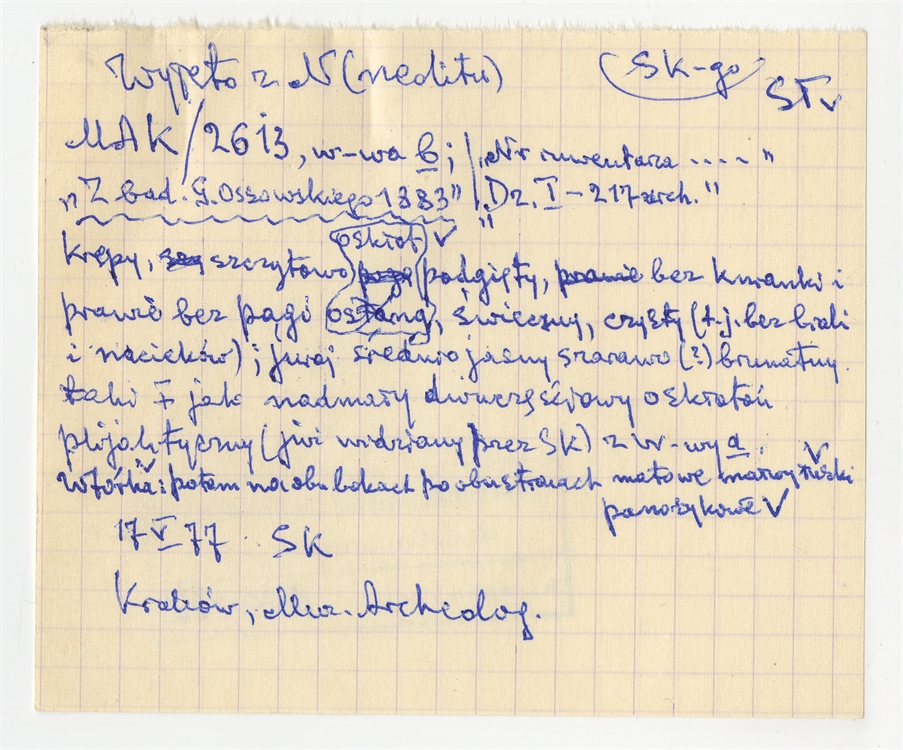 Wyjęto z N (ineditu) SK-go STv
MAK/2613, w-wa b; „Nr inwentarza ...."
„Z bad. G. Ossowskiego 1883" „Dz. I - 217 arch."
oskrob V
krępy, szczytowo podgięty, prawie bez kwanki i
prawie bez pągi ostang, świeczny, czysty (t.j. bez bieli
i nacieków); juraj średnio jasny szarawo (?) brunatny.
taki F jak nadmały dwuczęściowy oskrotoń
plijaktyczny (jiwi widziany przez SK) z W-wy a.
Wtórka: potem na obu bokach po obu stronach matowe
panożykowe V
17 V 77 SK
Kraków, Muz. Archeolog.